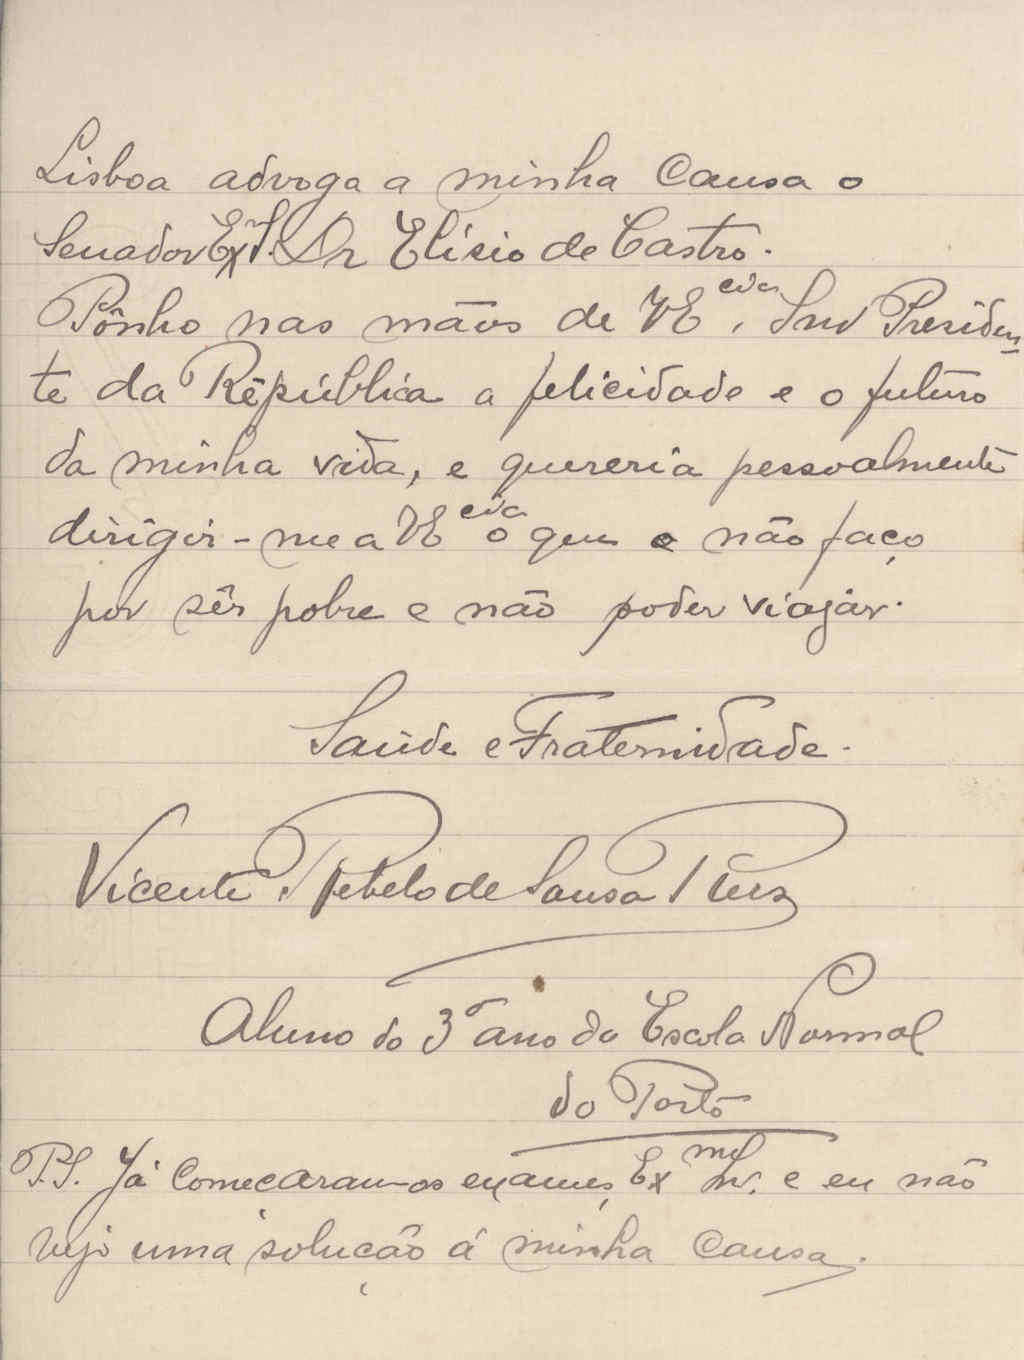 Lisboa advoga a minha causa o
Senador Exmº. Dr Elisio de Castro.
Pônho nas mãos de VE.cia Snr Presiden-
te da República a felicidade e o futuro
da minha vida, e quereria pessoalmente
dirigir-me a VEcia o que o não faço
por sêr pobre e não poder viajár.
Saúde e Fraternidade.
Vicente Rebelo de Sousa Pires
Aluno do 3º ano da Escola Normal
do Porto
P.S. Já começaram os exames, Exmº Snr. e eu não
vejo uma solução á minha causa.